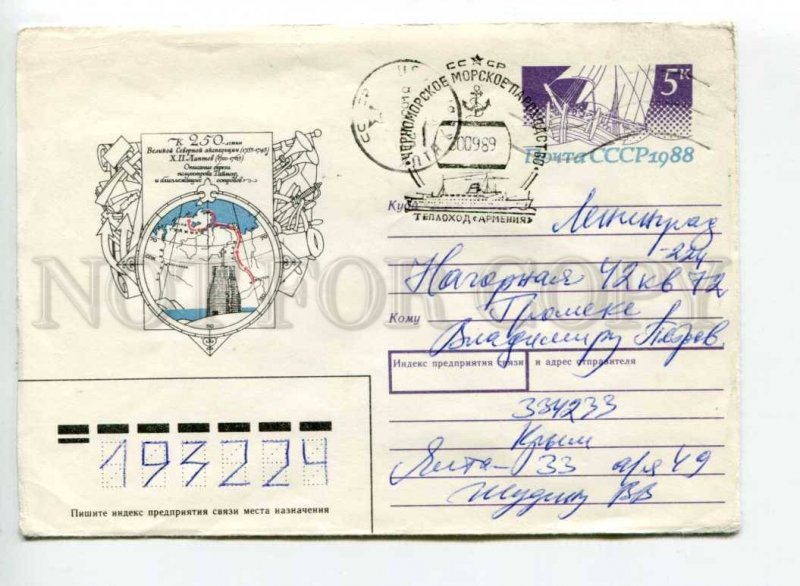 К 250-летию
Великой Северной экспедиции (1733-1743)
Х.П. Лаптев (1700-1763)
Описание берега
полуострова Таймыр
и близлежащих островов
СССР
ЧЕРНОМОРСКОЕ МОРСКОЕ ПАРОХОДСТВО
200989
ТЕПЛОХОД «АРМЕНИЯ»
СССР
ЯЛТА
5к
Почта СССР 1988
Куда
Ленинград
-224
Нагорная 42 кв 72
Кому
Громеке
Владимиру Петров
Индекс предприятия связи и адрес отправителя
334233
Крым
Ялта-33 а/я 49
ВВ
193224
Пишите индекс предприятия связи места назначения
NOT FOR COPY